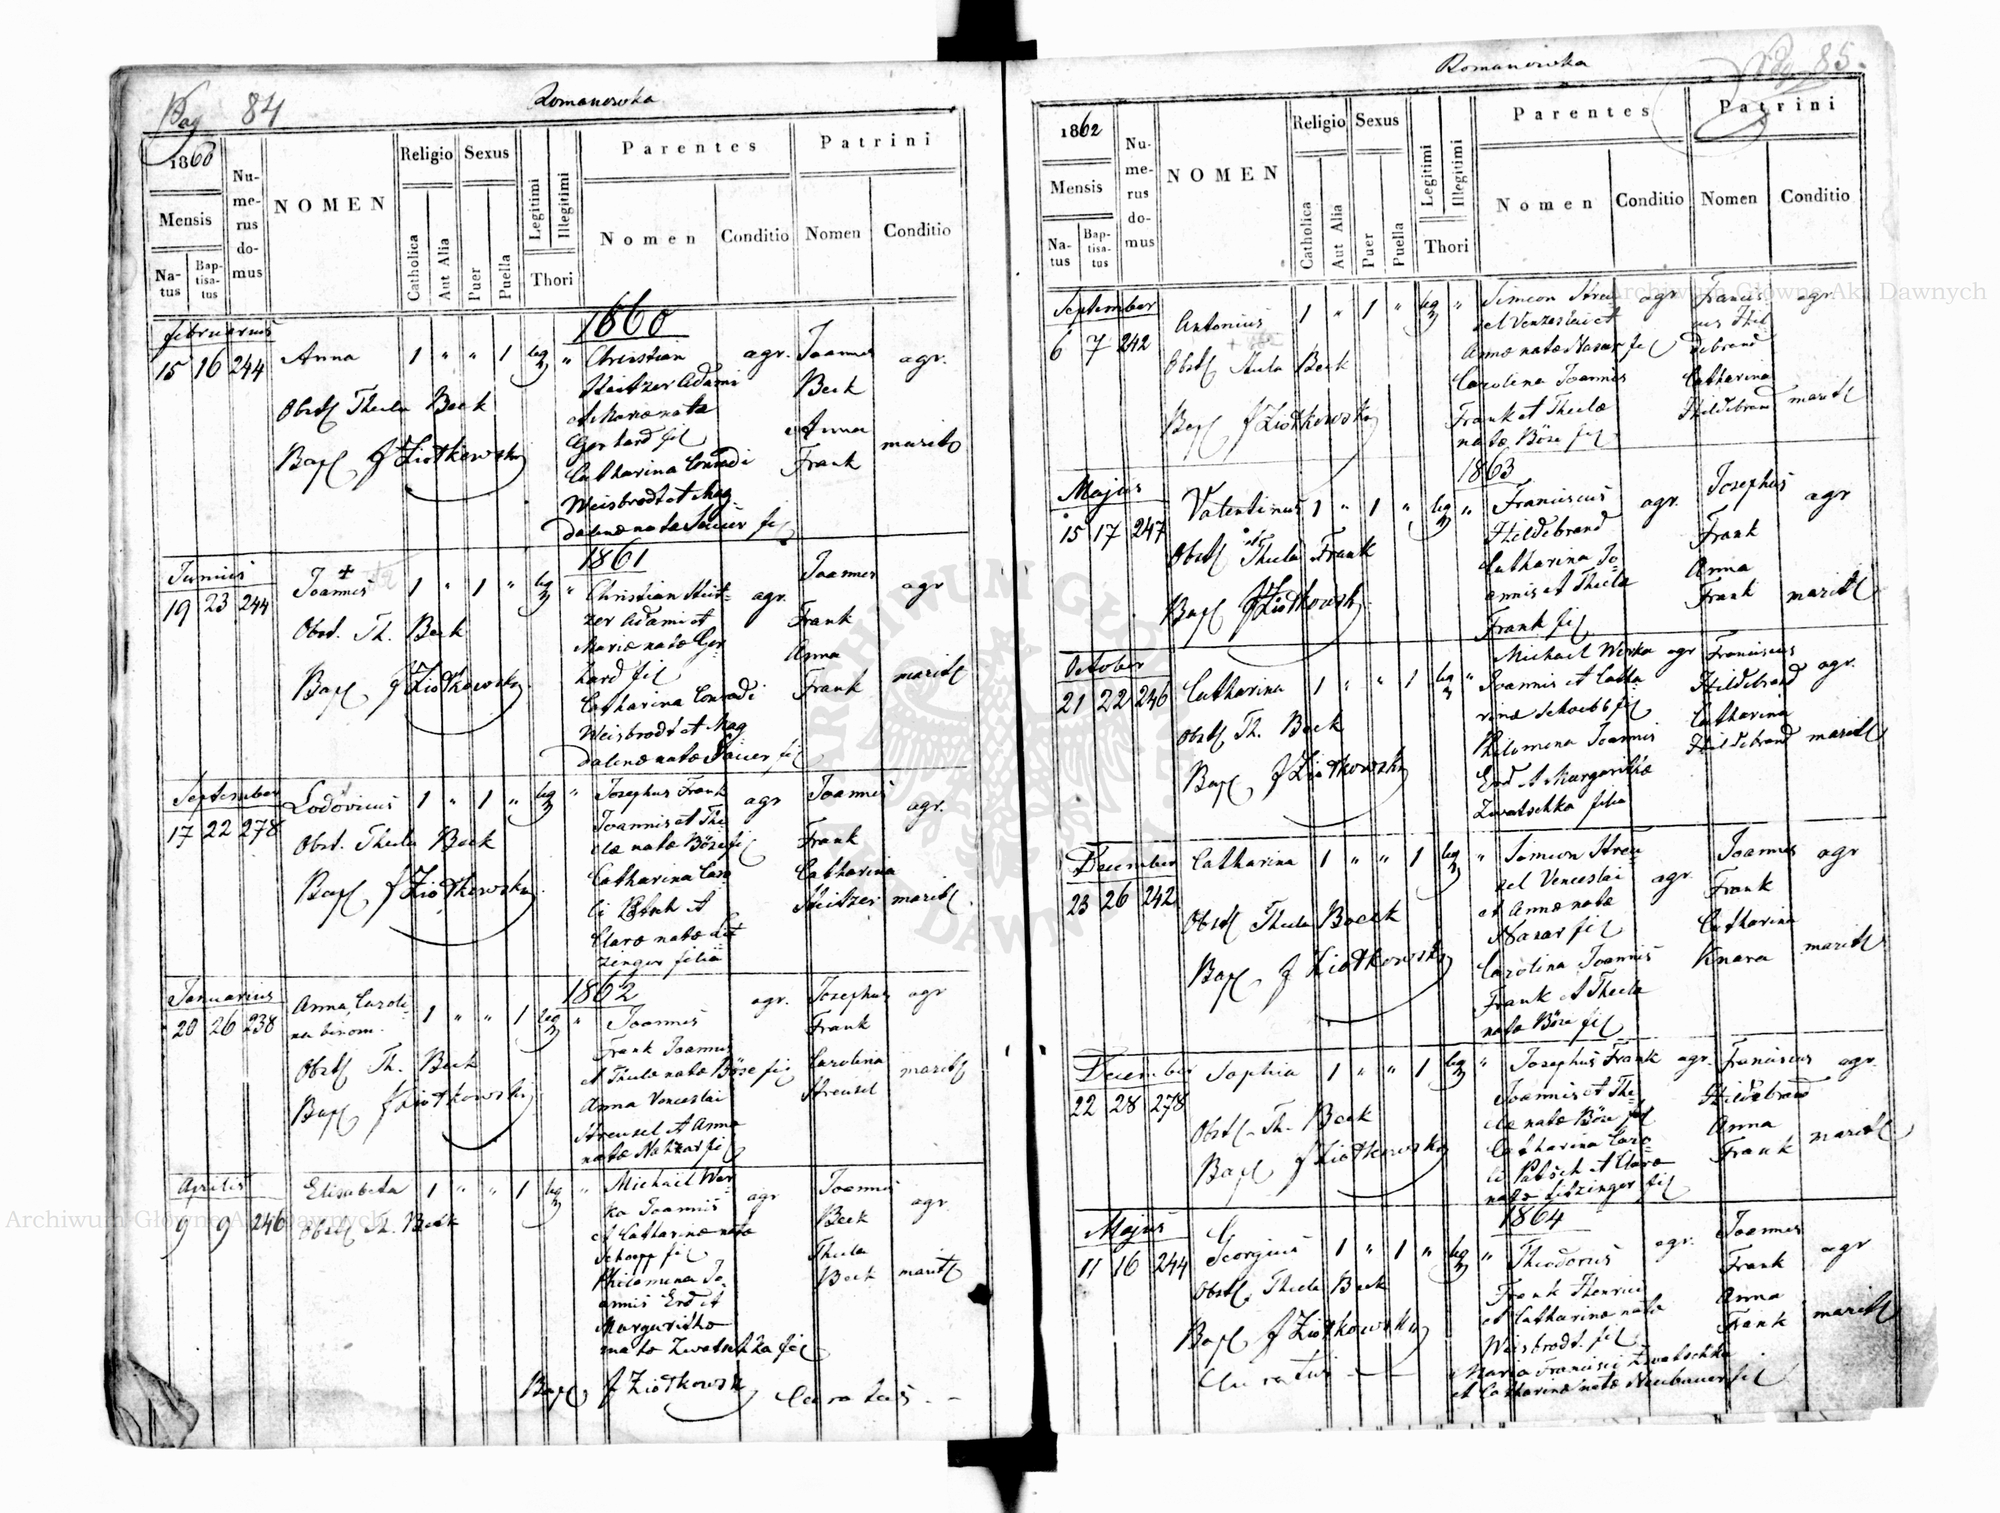 Pag 84
Romanowka
1860
Mensis
Na-
tus
Bap-
tisa-
tus
Nu-
me-
rus
do-
mus
NOMEN
Religio
Catholica
Aut Alia
Sexus
Puer
Puella
Legitimi
Illegitimi
Thori
Parentes
Nomen
Conditio
Patrini
Nomen
Conditio
1860
Februarius
15 16 244 Anna 1 " " 1 leg "
Obst Thecla Beck
Bap J Ziołkowski
Christian
Heitzer Adami
et Mariae nata
Gerhard fil
Catharina Conradi
Weisbrodt et Mag
dalenae nata Sauer fil
agr.
Joannes
Beck
Anna
Frank
agr.
marito
1861
Junius
19 23 244 Joannes 1 " 1 " leg "
Obst. Th. Beck
Bap J Ziołkowski
Christian Heit-
zer Adami et
Mariae natae Ger
hard fil
Catharina Conradi
Weisbrodt et Mag
dalenae natae Sauer fil
agr.
Joannes
Frank
Anna
Frank
agr
marit
September
17 22 278 Lodovicus 1 " 1 " leg "
Obst. Thecla Beck
Bap J Ziołkowski
Josephus Frank
Joannis et The
clae natae Böse fil
Catharina Caro
li et
Clarae natae Lit
zenger filia
agr
Joannes
Frank
Catharina
Heitzer
agr.
marit
1862
Januarius
20 26 238 Anna, Caroli-
na binom. 1 " " 1 leg "
Obst Th. Beck
Bap J Ziołkowski
Joannes
Frank Joannis
et Theclae natae Böse fil
Anna Venceslai
Streusel et Anna
natae Nahzar fil
agr.
Josephus
Frank
Carolina
Streusel
agr
marit
Aprilis
9 9 246 Elisabeta 1 " " 1 leg "
Obst Th. Beck
Michael Wer
ka Joannis
et Catharinae natae
Schoepp fil
Philomena Jo-
annis Erd et
Margaritha
nata Zwatschka fil
agr
Joannes
Beck
Thecla
Beck
agr.
marit
Bap J Ziołkowski Curatus
Romanowka
Pag 85.
1862
Mensis
Na-
tus
Bap-
tisa-
tus
Nu-
me-
rus
do-
mus
NOMEN
Religio
Catholica
Aut Alia
Sexus
Puer
Puella
Legitimi
Illegitimi
Thori
Parentes
Nomen
Conditio
Patrini
Nomen
Conditio
September
6 7 242 Antonius 1 " 1 " leg "
Obst Thecla Beck
Bap J Ziołkowski
Simeon Streu
sel Venzeslai et
Annae natae Nasar fil
Carolina Joannis
Frank et Theclae
natae Böse fil
agr
Francis
cus Hil
debrand
Catharina
Hildebrand
agr.
marit
1863
Majus
15 17 247 Valentinus 1 " 1 " leg "
Obst Thecla Frank
Bap J Ziołkowski
Franciscus
Hildebrand
Catharina Jo-
annis et Thecla
Frank fil
agr.
Josephus
Frank
Anna
Frank
agr
marit
October
21 22 246 Catharina 1 " " 1 leg "
Obst Th. Beck
Bap J Ziołkowski
Michael Werka
Joannis et Catha
rina Schoebb fil
Philomena Joannis
Erd et Margaritha
Zwatschka filia
agr
Franciscus
Hildebrand
Catharina
Hildebrand
agr.
marit
December
23 26 242 Catharina 1 " " 1 leg "
Obst Thecla Boeck
Bap J Ziołkowski
Simeon Streu
sel Venceslai
et Annae natae
Nasar fil
Carolina Joannis
Frank et Thecla
natae Böse fil
agr.
Joannes
Frank
Catharina
Knara
agr
marit
December
22 28 278 Sophia 1 " " 1 leg "
Obst Th. Beck
Bap J Ziołkowski
Josephus Frank
Joannis et The-
clae natae Böse fil
Catharina Caro
li et Clarae
natae Litzinger fil
agr.
Franciscus
Hildebrand
Anna
Frank
agr.
marit
1864
Majus
11 16 244 Georgius 1 " 1 " leg "
Obst. Thecla Beck
Bap J Ziołkowski
Curatus
Theodorus
Frank Henrici
et Catharinae natae
Weisbrodt fil
Maria Francisci Zwatschka
et Catharinae natae Neubauer fil
agr.
Joannes
Frank
Anna
Frank
agr
marit
Archiwum Główne Akt Dawnych
Archiwum Główne Akt Dawnych
ARCHIWUM GŁÓWNE AKT DAWNYCH